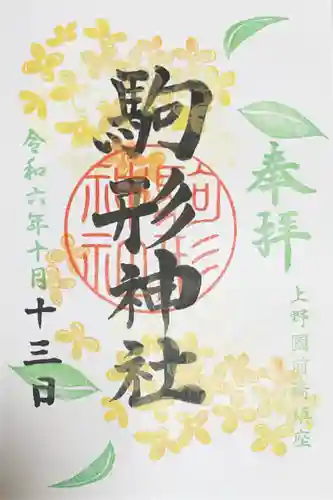 奉拝
上野國前橋鎮座
駒形神社
駒形
神社
令和六年十月十三日